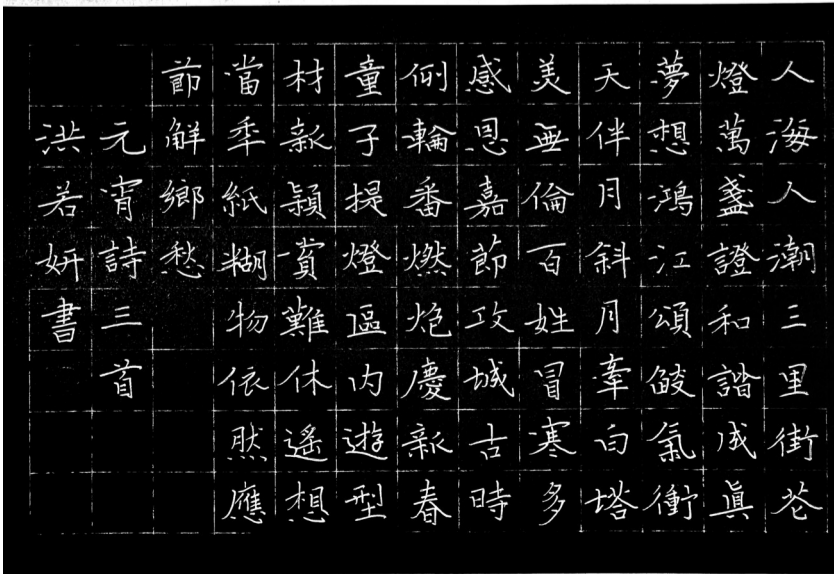 人海人潮三里街花
燈萬盞證和諧成眞
夢想鴻江頌氣衝
天伴月斜月牽白塔
美無倫百姓冒寒多
感恩嘉節攻城古時
例輪番燃炮慶新春
童子提燈區內遊型
材新穎賞難休遙想
當年紙糊物依然應
節解鄉愁
元宵詩三首
洪若妍書